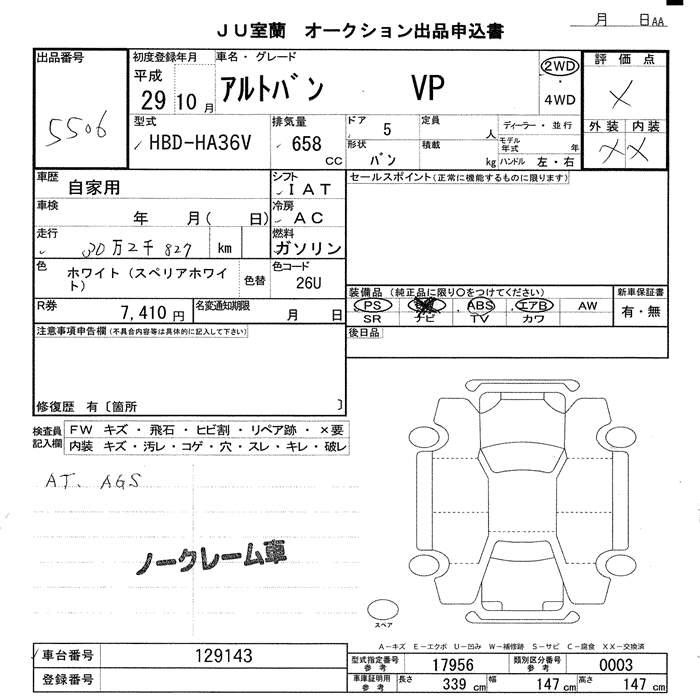 月 日AA
JU室蘭 オークション出品申込書
出品番号
5506
初度登録年月
平成
29 10 月
車名・グレード
アルトバン VP
2WD
・
4WD
評価点
X
外装 内装
X X
型式
HBD-HA36V
排気量
658
CC
ドア
5
定員
人
ディーラー・並行
形状
バン
積載
kg
モデル年式 年
ハンドル 左・右
車歴
自家用
シフト
IAT
セールスポイント(正常に機能するものに限ります)
車検
年 月( 日)
冷房
AC
走行
30万2千827 km
燃料
ガソリン
色
ホワイト(スペリアホワイト)
色替
色コード
26U
装備品(純正品に限り〇をつけてください)
PS ABS エアB AW
SR ナビ TV カワ
新車保証書
有・無
R券
7,410 円
名変通知期限
月 日
後日品
注意事項申告欄(不具合内容等は具体的に記入して下さい)
修復歴 有〔箇所 〕
検査員記入欄
FW キズ・飛石・ヒビ割・リペア跡・×要
内装 キズ・汚レ・コゲ・穴・スレ・キレ・破レ
AT. AGS
ノークレーム車
スペア
A-キズ E-エクボ U-凹み W-補修跡 S-サビ C-腐食 XX-交換済
車台番号 129143
登録番号
型式指定番号
参考
17956
類別区分番号
参考
0003
車庫証明用
参考
長さ 339 cm 幅 147 cm 高さ 147 cm